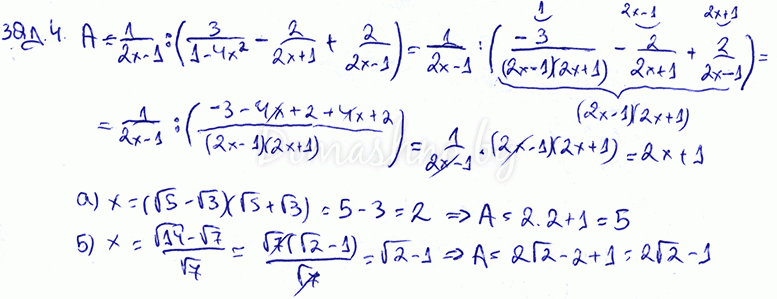 Зад.4. A = 1/(2x-1) : (3/(1-4x²) - 2/(2x+1) + 2/(2x-1)) = 1/(2x-1) : (-3/((2x-1)(2x+1)) - 2/(2x+1) + 2/(2x-1)) =
1 2x-1 2x+1
(2x-1)(2x+1)
= 1/(2x-1) : ((-3-4x+2+4x+2)/((2x-1)(2x+1))) = 1/(2x-1) · (2x-1)(2x+1) = 2x+1
а) x = (√5-√3)(√5+√3) = 5-3 = 2 ⇒ A = 2.2+1 = 5
б) x = (√14-√7)/√7 = √7(√2-1)/√7 = √2-1 ⇒ A = 2√2-2+1 = 2√2-1